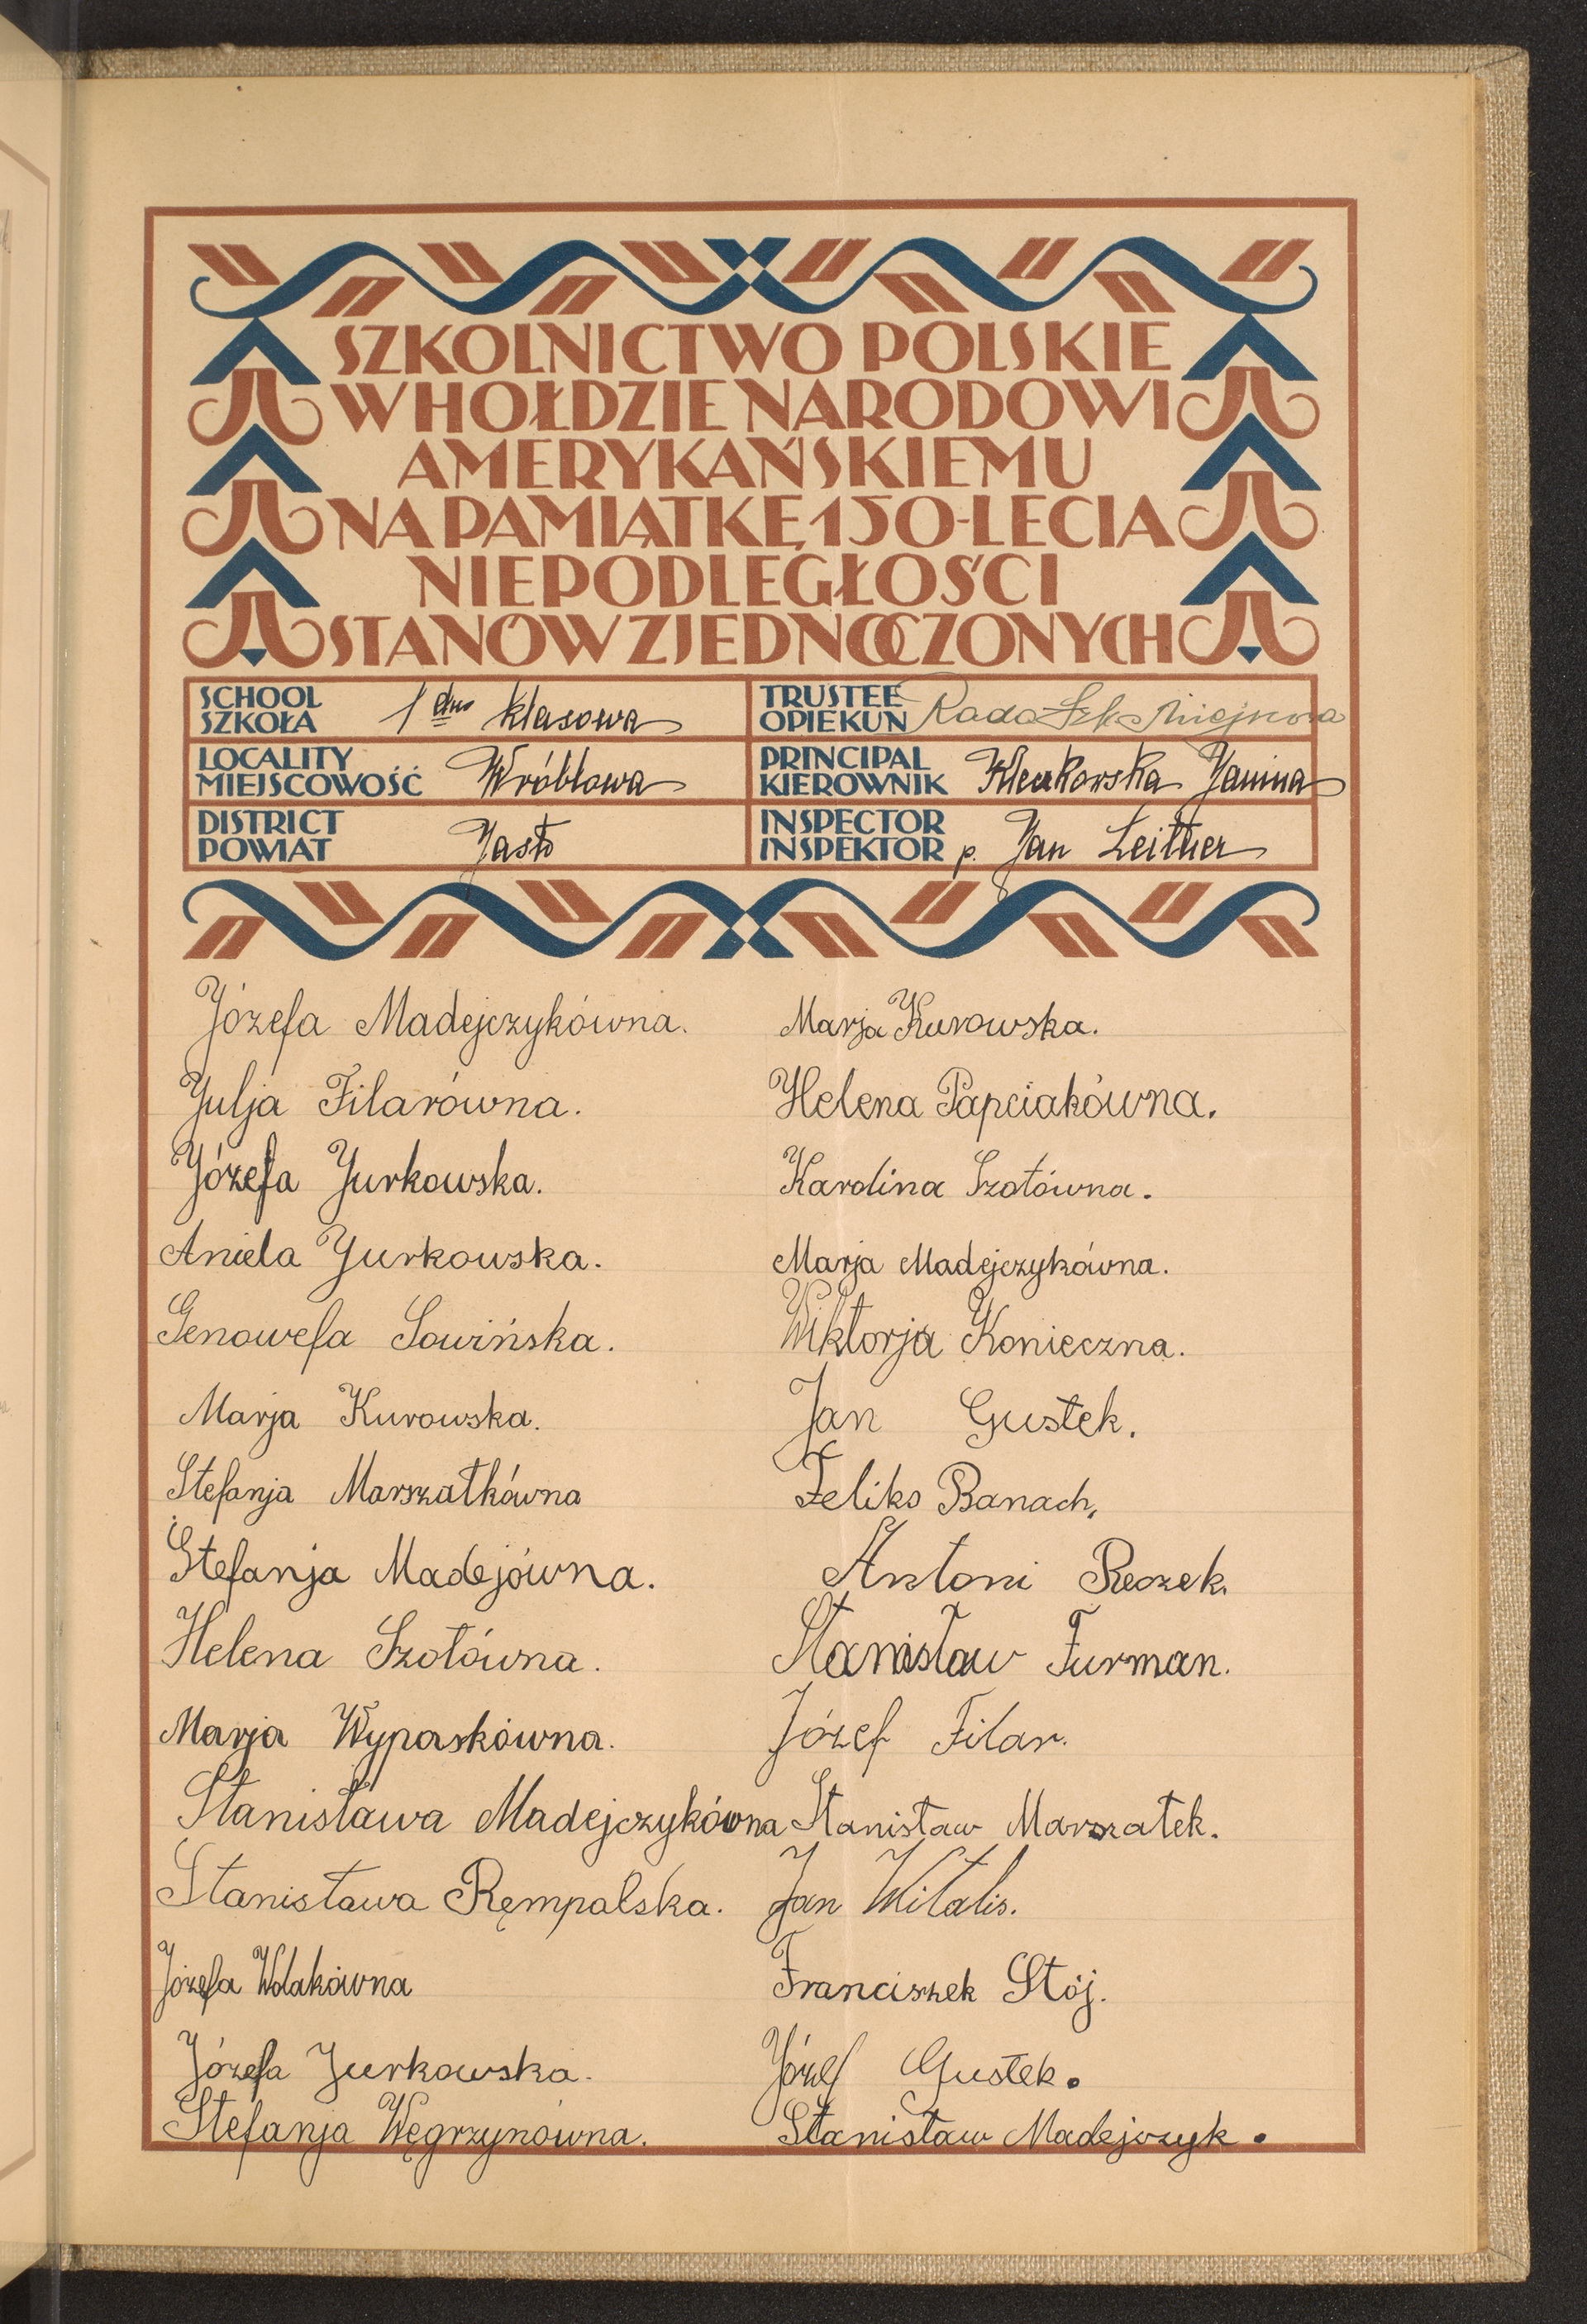 SZKOLNICTWO POLSKIE
W HOŁDZIE NARODOWI
AMERYKAŃSKIEMU
NA PAMIĄTKĘ 150-LECIA
NIEPODLEGŁOŚCI
STANÓW ZJEDNOCZONYCH
SCHOOL
SZKOŁA 1 dno klasowa
TRUSTEE
OPIEKUN Rada Szk. Miejscowa
LOCALITY
MIEJSCOWOŚĆ Wróblowa
PRINCIPAL
KIEROWNIK Janina
DISTRICT
POWIAT Jasło
INSPECTOR
INSPEKTOR p. Jan Leitner
Józefa Madejczykówna.
Julja Filarówna.
Józefa Jurkowska.
Aniela Jurkowska.
Genowefa Sowińska.
Marja Kurowska.
Stefanja Marszałkówna
Stefanja Madejówna.
Helena Szotówna.
Marja Wypaskówna.
Stanisława Madejczykówna
Stanisława Rempalska.
Józefa Wolakówna
Józefa Jurkowska.
Stefanja Węgrzynówna.
Marja Kurowska.
Helena Papciakówna.
Karolina Szotówna.
Marja Madejczykówna.
Wiktorja Konieczna.
Jan Gustek.
Feliks Banach,
Antoni Reszek.
Stanisław Furman.
Józef Filar.
Stanisław Marszałek.
Jan Witalis.
Franciszek Stój.
Józef Gustek.
Stanisław Madejczyk.